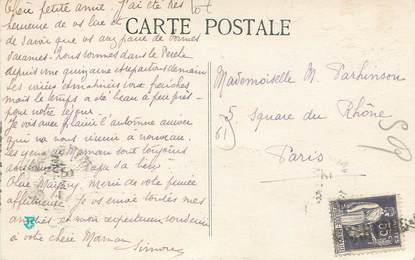 Chère petite amie. J'ai été très
heureuse de vous lire et
CARTE POSTALE
de savoir que vous avez passé de bonnes
vacances. Nous sommes dans le Perche
depuis une quinzaine et repartons demain
Les soirées et matinées sont fraîches
mais le temps a été beau à peu près
pour notre séjour.
Je vois avec plaisir l'automne arriver
qui va nous réunir à nouveau.
Les yeux de Maman sont toujours
Papa va bien
Chère merci de votre pensée
affectueuse. Je vous envoie toutes mes
amitiés et mon respectueux souvenir
à votre chère Maman
Simone
Mademoiselle M. Parkinson
5 square du Rhône
Paris